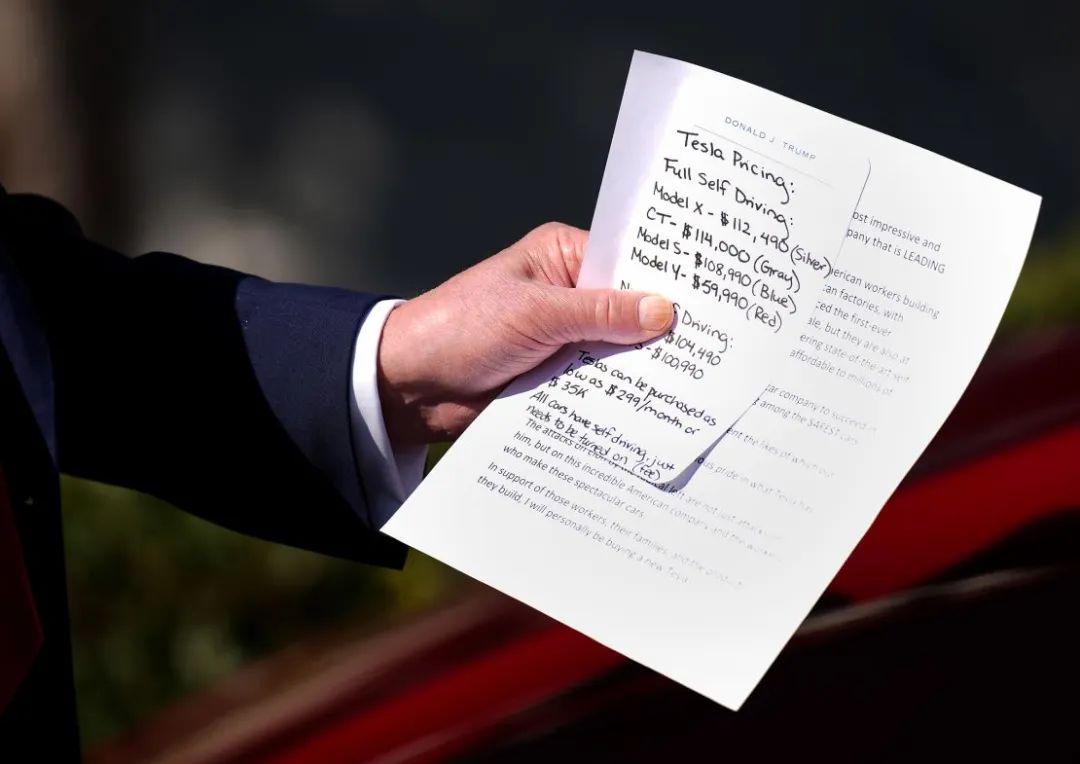 DONALD J. TRUMP
Tesla Pricing:
Full Self Driving:
Model X - $112,490 (Silver)
CT - $114,000 (Gray)
Model S - $108,990 (Blue)
Model Y - $59,990 (Red)
Driving:
$104,490
- $100,990
Teslas can be purchased as
low as $299/month or
$35K
All cars have self driving, just
needs to be turned on (fee)
ost impressive and
pany that is LEADING
erican workers building
an factories, with
ced the first-ever
ale, but they are also at
ering state-of-the-art self
affordable to millions of
car company to succeed in
among the SAFEST cars
ent the likes of which our
ous pride in what Tesla has
The attacks on are not just attacks on
him, but on this incredible American company and the workers
who make these spectacular cars.
In support of those workers, their families, and the product
they build, I will personally be buying a new Tesla